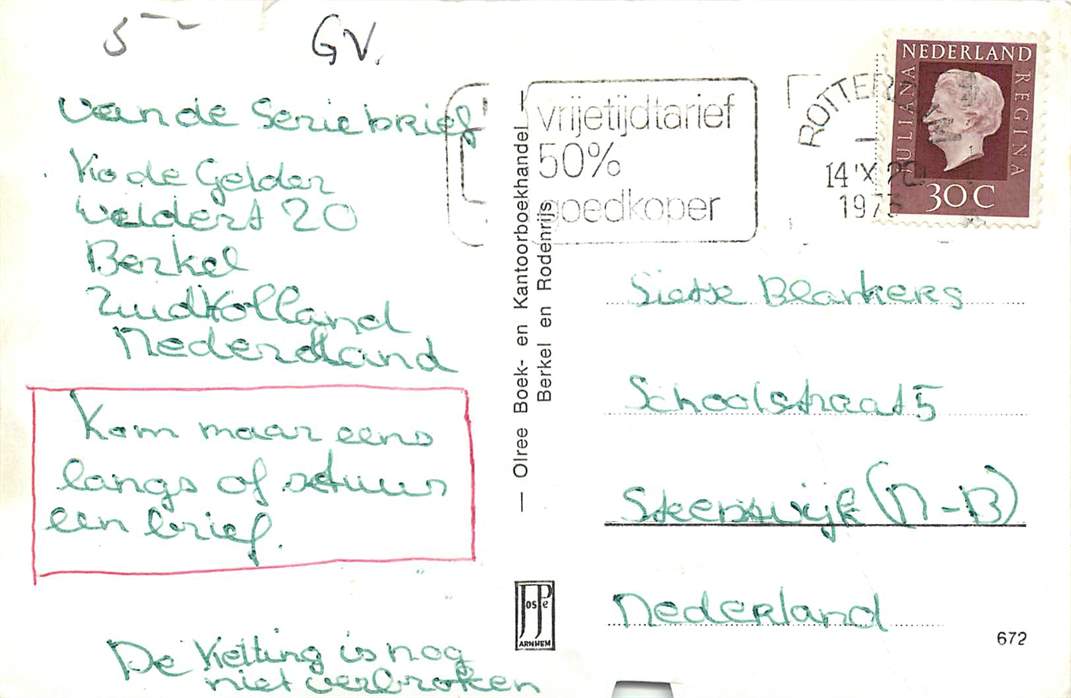 5 —
GV.
van de Serie brief
Kio de Gelder
Weldert 20
Berkel
Zuidholland
Nederland
Kom maar eens
langs of stuur
een brief.
De Ketting is nog
niet verbroken
— Olree Boek- en Kantoorboekhandel —
Berkel en Rodenrijs
JosPé
ARNHEM
vrijetijdtarief
50%
goedkoper
14 X 20
NEDERLAND
JULIANA
REGINA
30 C
Sietse Blankers
Schoolstraat 5
Steenwijk (N-B)
Nederland
672